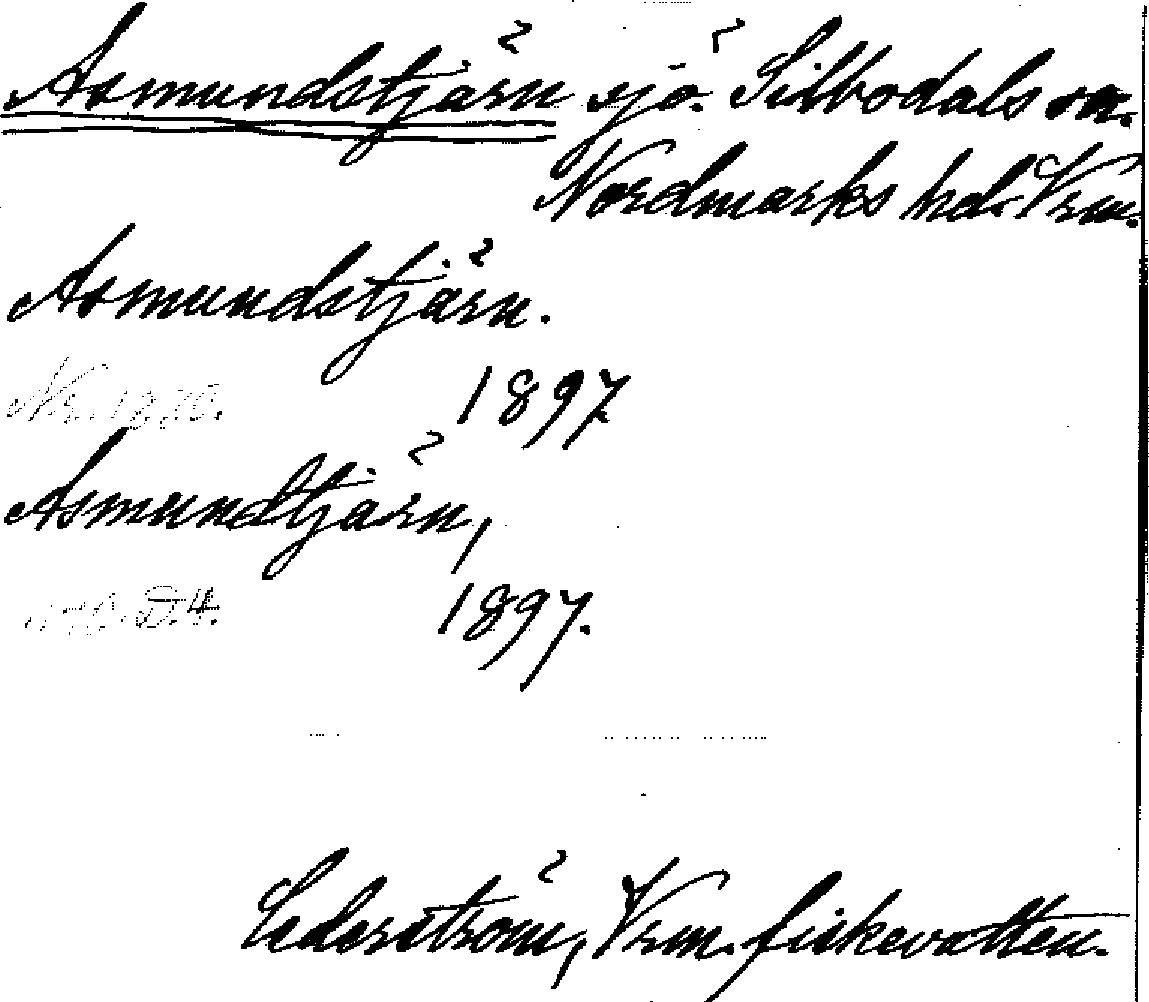 Asmundstjärn sjö. Silbodals sn.
Nordmarks hd. Vrm.
Asmundstjärn.
1897
Asmundtjärn,
1897.
Cederström, Vrm. fiskevatten.